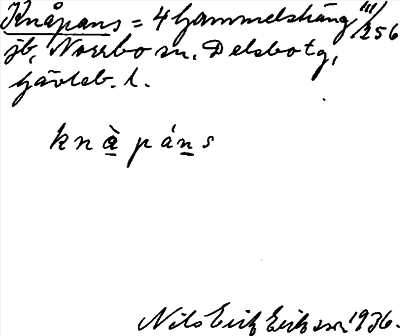 Knåpans = 4 Gammelsträng III/256
jb, Norrbo sn. Delsbo tg,
Gävleb. l.
knàpáns
Nils Erik Eriksson 1936.